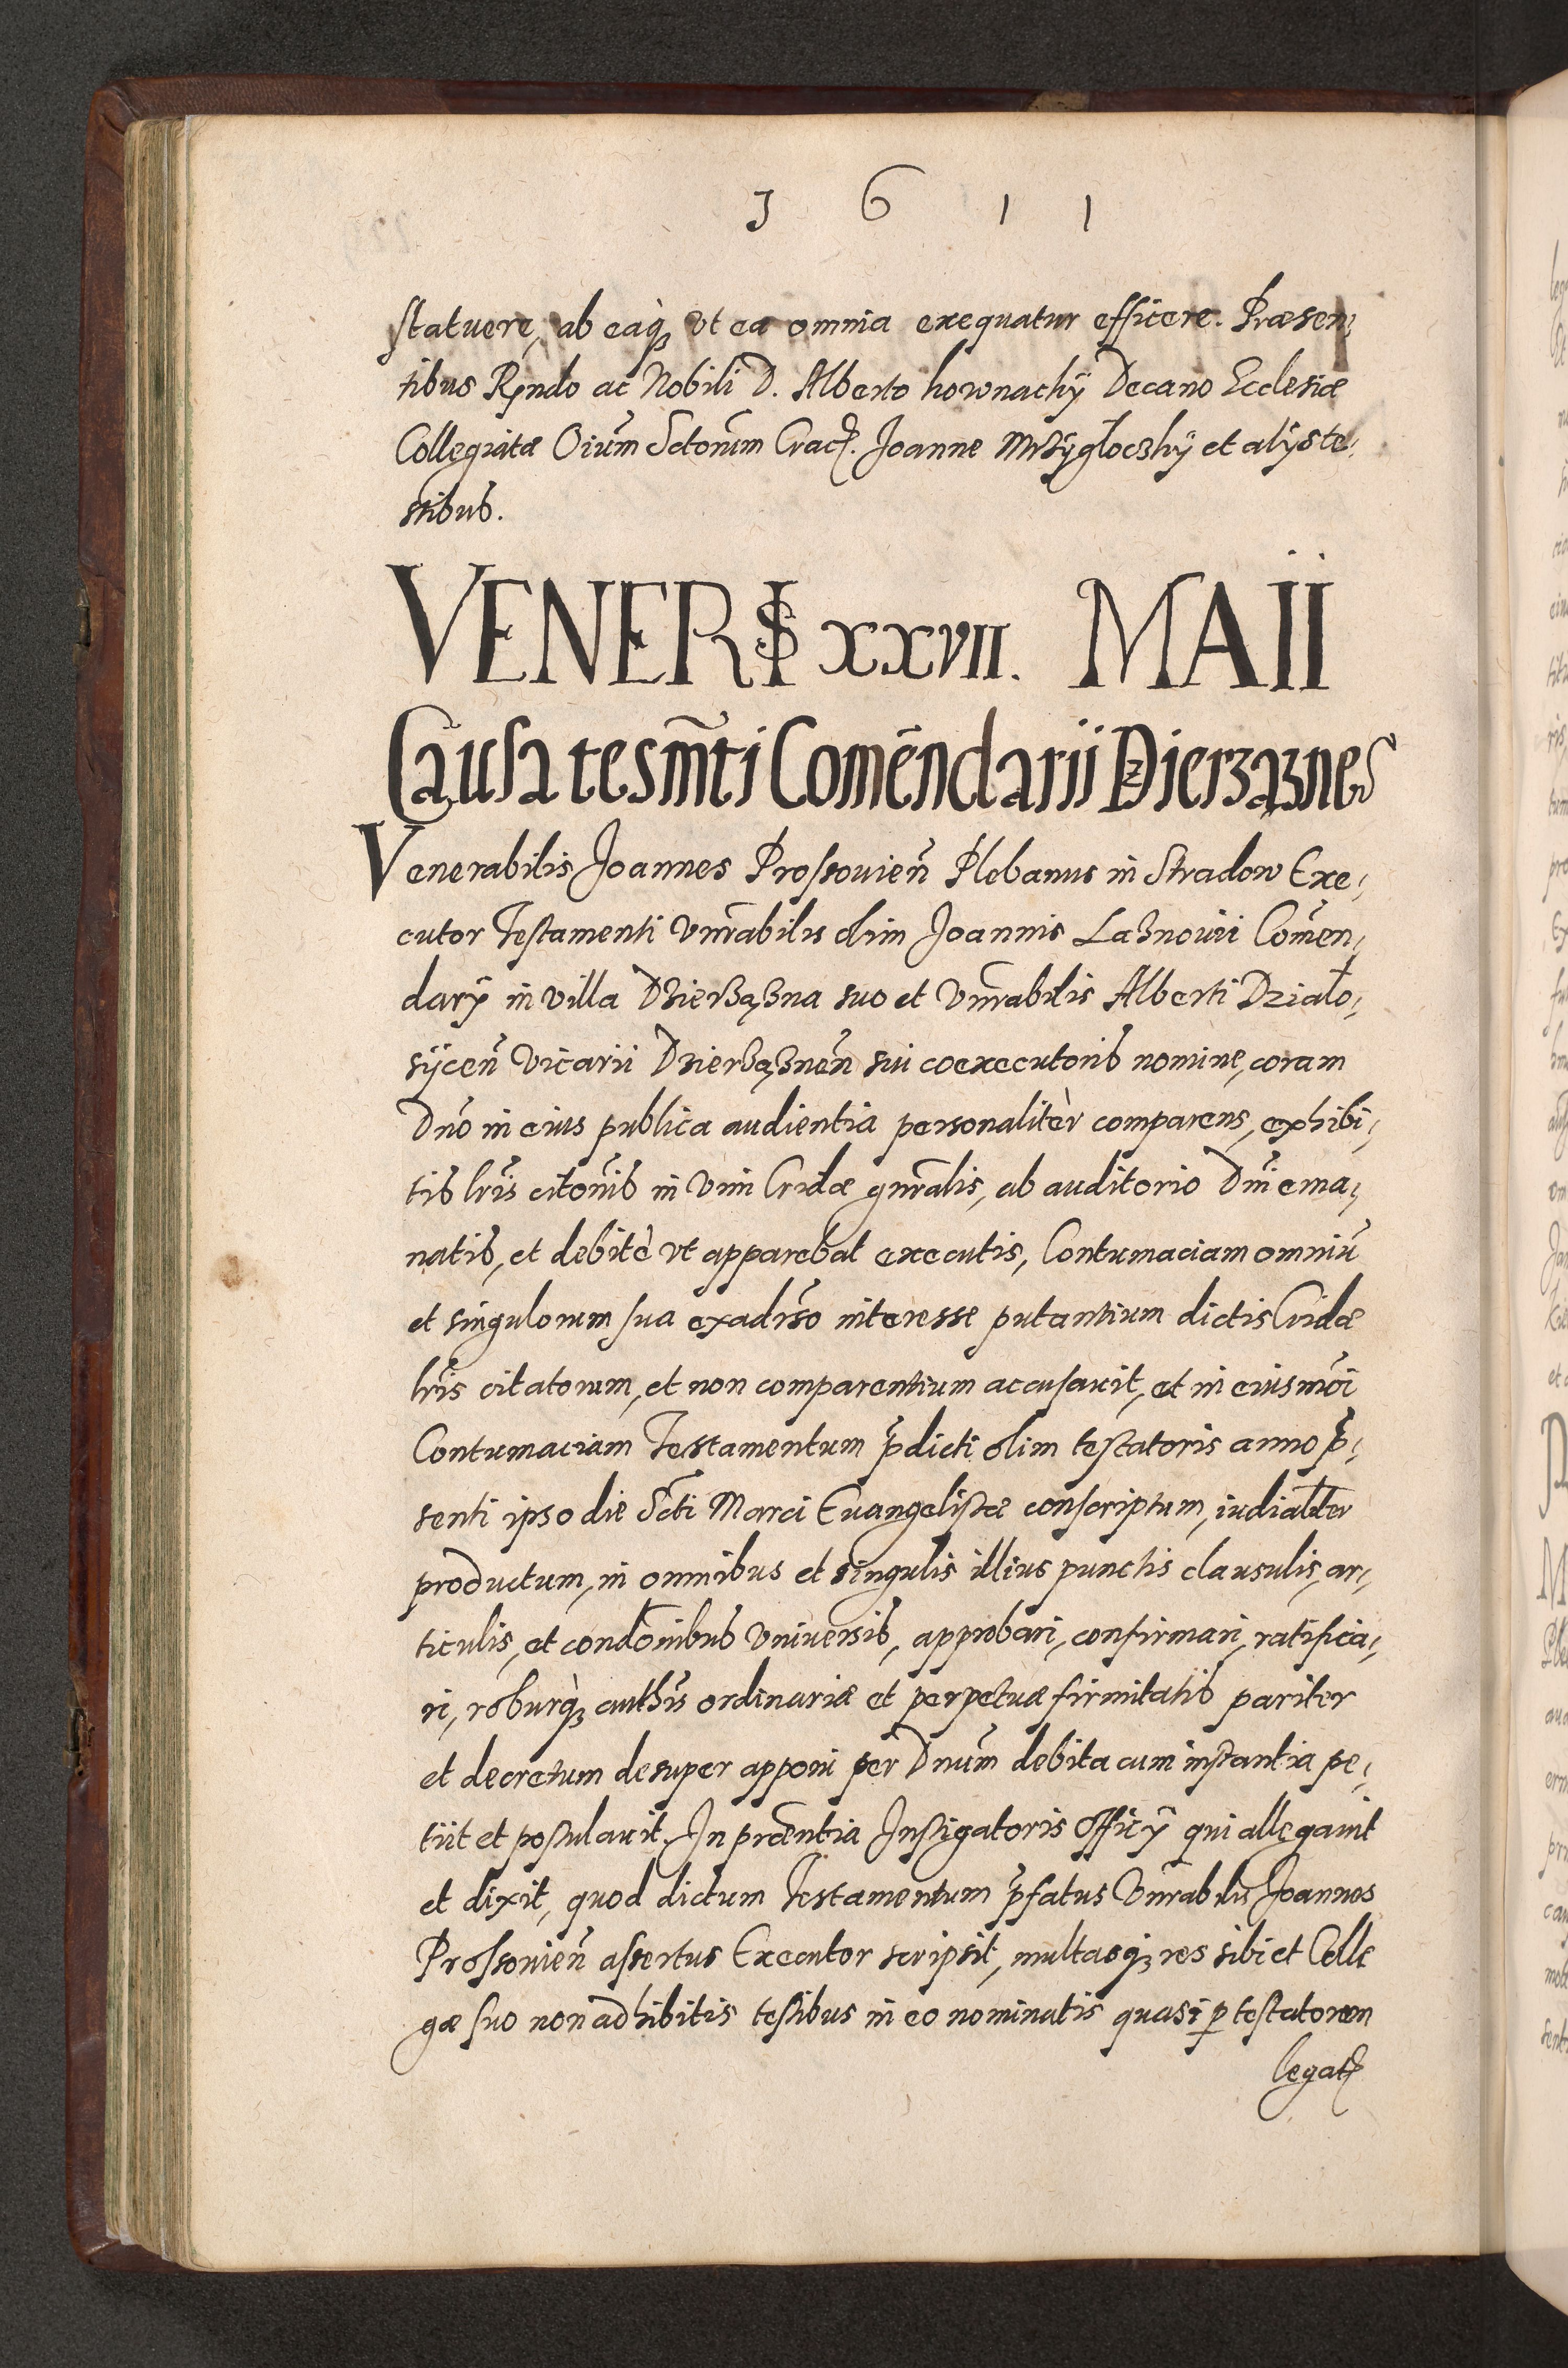 1 6 1 1
statuere, ab eaq̀ꝫ vt ea omnia exequatur efficere. Præsen,
tibus Rṇdo ac Nobili D. Alberto hownachÿ Decano Ecclesiæ
Collegiatæ Oium̃ Sctorum̃ Crac. Joanne Mrzÿgłoczhÿ et alÿs te,
stibus.
VENERIS xxvii. MAII
Causa tesm̃ti Com̃endarii Dzierzązneñ
Venerabilis Joannes Prossouieñ Plebanus in Stradow Exe,
cutor Testamenti Vnr̃abilis olim Joannis Laznowii Com̃en,
darÿ in villa Dzierzązna suo et Vnr̃abilis Alberti Działo,
sÿceñ Vicarii Dzierząznen̄ sui coexecutoris nomine, coram
Dnõ in eius publica audientia personalitèr comparens, exhibi,
tis lrĩs citoñis in vim Cridæ gnr̃alis, ab auditorio Dnĩ ema,
natis, et debitè vt apparebat executis, Contumaciam omniũ
et singulorum sua exadrs̃o interesse putantium dictis Cridæ
lrĩs citatorum, et non comparentium accusauit, et in eiusmõi
Contumaciam Testamentum p̃dicti olim testatoris anno p̃,
senti ipso die Scti Marci Euangelistæ conscriptum, iudialiter
productum, in omnibus et singulis illius punctis clausulis, ar,
ticulis, et condõnibus vniuersis, approbari, confirmari, ratifica,
ri, roburq̀ꝫ authĩs ordinariæ et perpetuæ firmitatis pariter
et decretum desuper apponi per Dnum̃ debita cum instantia pe,
tiit et postulauit. In præntia Instigatoris Officÿ qui allegauit
et dixit, quod dictum Testamentum p̃fatus Vnr̃abilis Joannes
Prossouieñ assertus Executor scripsit, multasqꝫ res sibi et Colle
gæ suo non adhibitis testibus in eo nominatis quasi ꝑ testatorem
legat